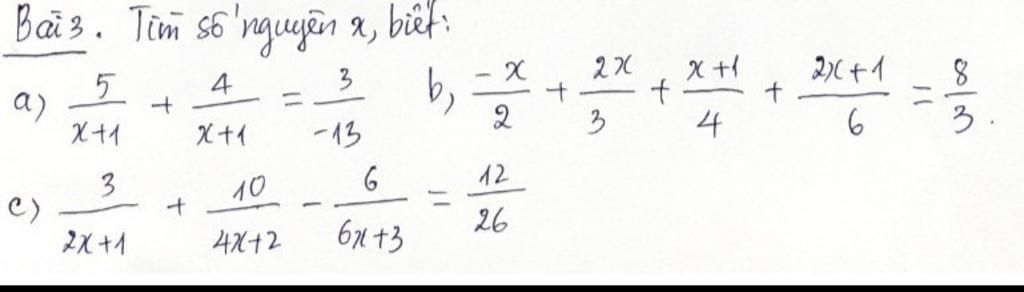 Bài 3. Tìm số nguyên x, biết:
a) 5/(x+1) + 4/(x+1) = 3/(-13) b, (-x)/2 + 2x/3 + (x+1)/4 + (2x+1)/6 = 8/3.
c) 3/(2x+1) + 10/(4x+2) - 6/(6x+3) = 12/26